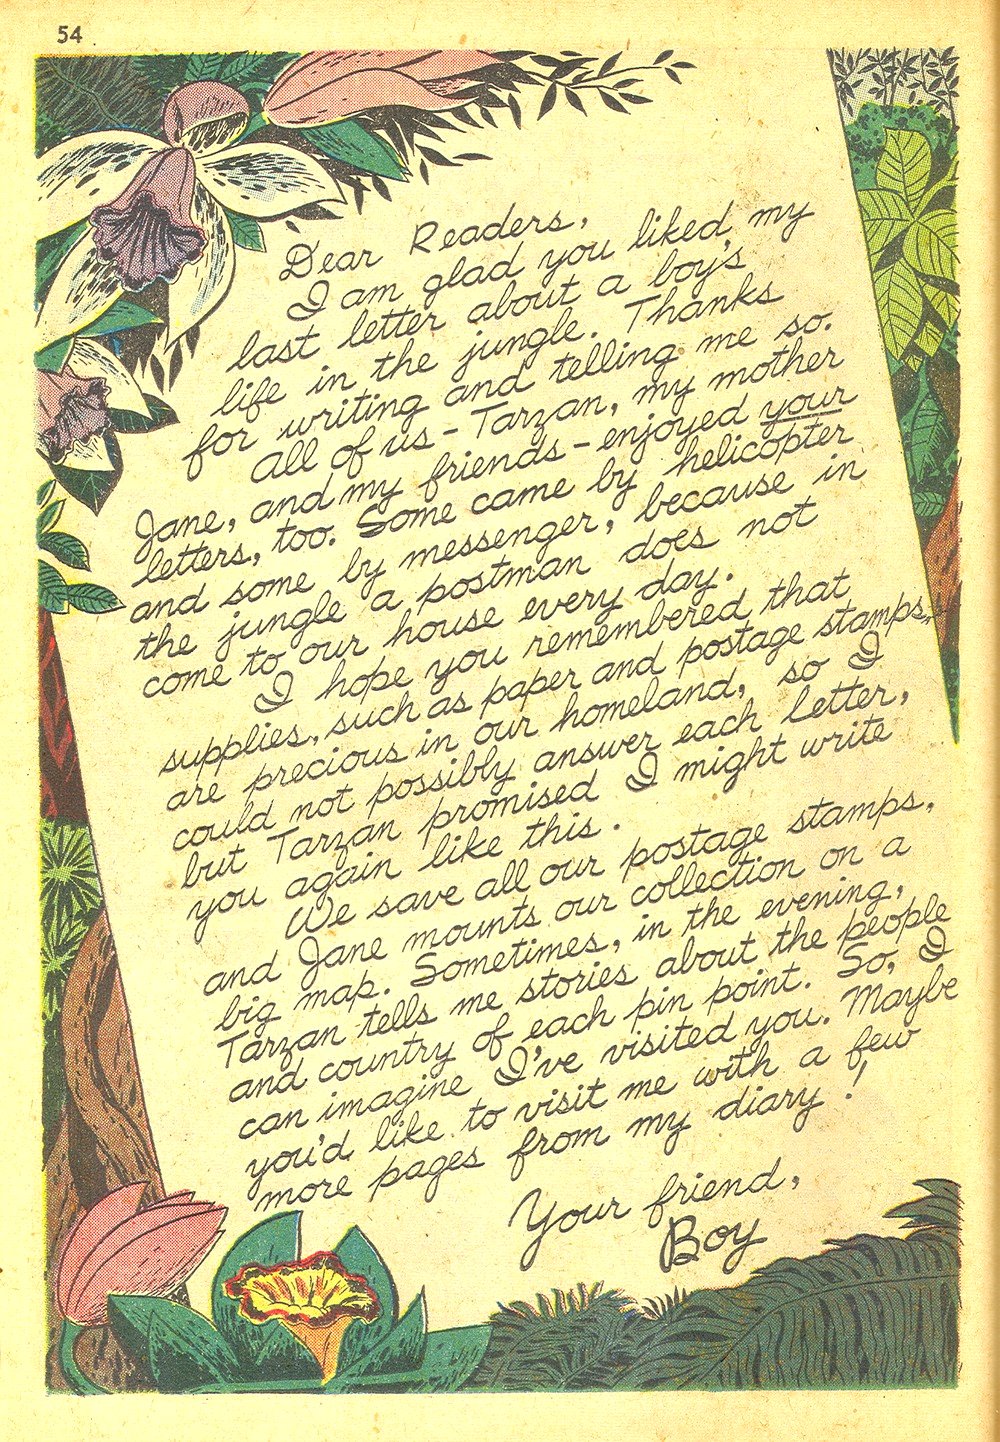 54
Dear Readers,
I am glad you liked my
last letter about a boy's
life in the jungle. Thanks
for writing and telling me so.
All of us - Tarzan, my mother
Jane, and my friends - enjoyed your
letters, too. Some came by helicopter
and some by messenger, because in
the jungle a postman does not
come to our house every day.
I hope you remembered that
supplies, such as paper and postage stamps,
are precious in our homeland, so I
could not possibly answer each letter,
but Tarzan promised I might write
you again like this.
We save all our postage stamps,
and Jane mounts our collection on a
big map. Sometimes, in the evening,
Tarzan tells me stories about the people
and country of each pin point. So, I
can imagine I've visited you. Maybe
you'd like to visit me with a few
more pages from my diary!
Your friend,
Boy